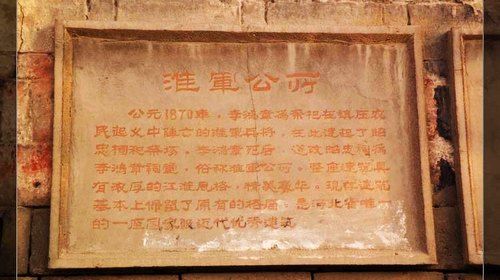 淮軍公所
公元1870年，李鴻章為祭祀在鎮压农
民起义中陣亡的淮軍兵將，在此建起了昭
忠祠和祭坊。李鴻章死后，遂改昭忠祠為
李鴻章祠堂，俗称淮軍公所。整座建筑具
有浓厚的江淮風格，精美豪华。现存建筑
基本上保留了原有的格局，是河北省唯一
的一座国家級近代优秀建筑